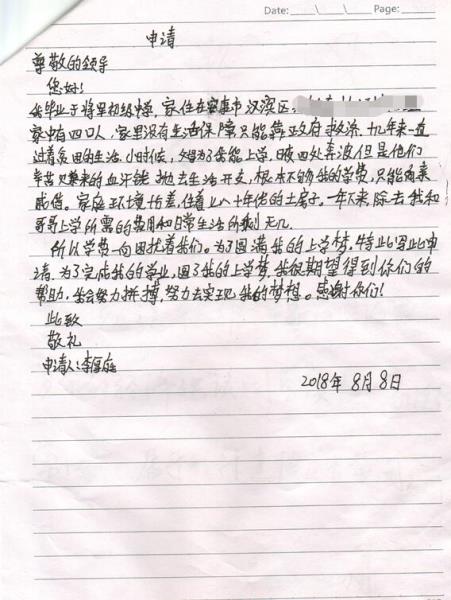 Date: \ \ Page:
申请
尊敬的领导
您好!
我毕业于将军初级中学，家住在安康市汉滨区
家中有四口人，家里没有生活保障只能靠政府救济，九年来一直
过着贫困的生活。小时候，父母为了我能上学，日夜四处奔波但是他们
辛苦只换来的血汗钱 抛去生活开支，根本不够我的学费，只能向亲
戚借。家庭环境很差，住着八十年代的土房子，一年下来，除去我和
哥哥上学所需的费用和日常生活所剩无几
所以学费一向困扰着我们。为了圆满我的上学梦，特此写此申
请。为了完成我的学业，圆了我的上学梦，我很期望得到你们的
帮助，我会努力拼搏，努力去实现我的梦想。感谢你们!
此致
敬礼
申请人:李厚
2018年8月8日